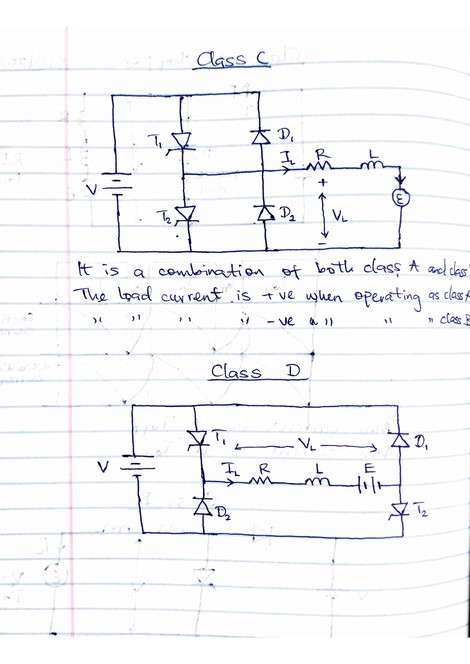 Class C
T1
D1
IL R L
V
+
E
T2
D2
VL
-
It is a combination of both class A and class
The load current is +ve when operating as class A
" " " " -ve " " " " class B
Class D
T1
VL
D1
V
IL R L E
D2
T2